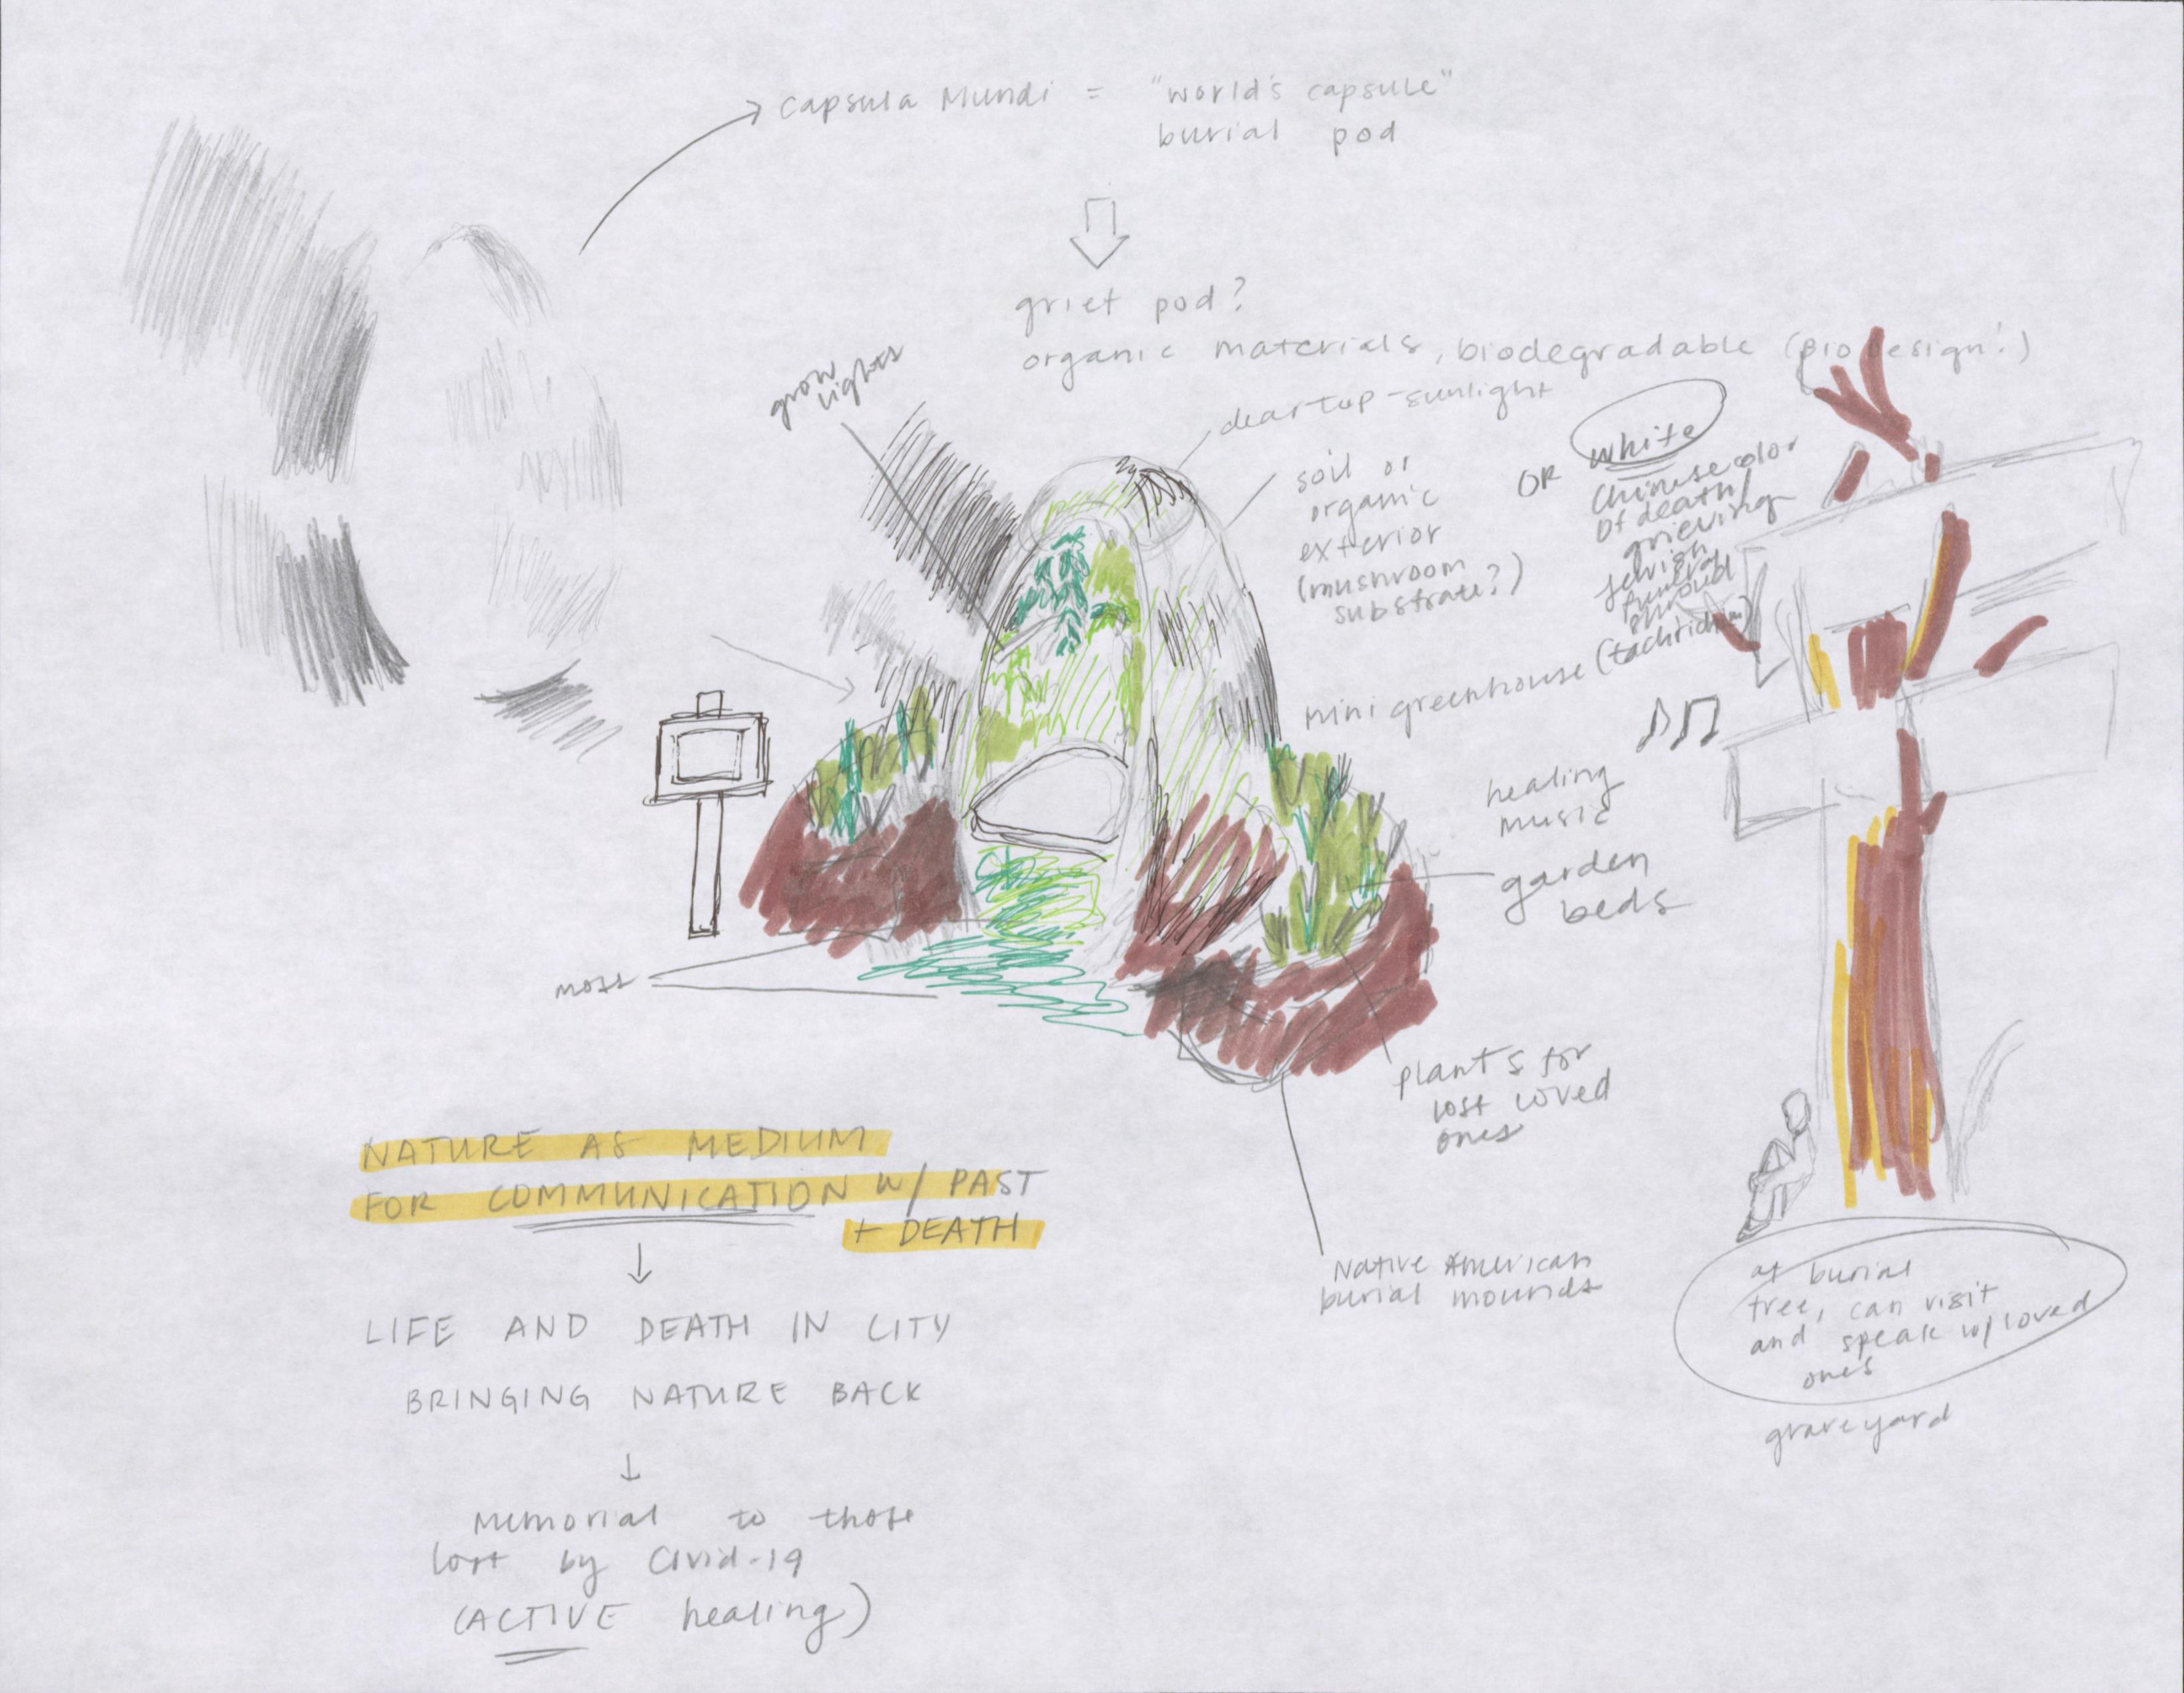 capsula Mundi = "world's capsule"
burial pod
grief pod?
organic materials, biodegradable (bio design!)
grow
lights
clear top - sunlight
soil or
organic
exterior
(mushroom
substrate?)
OR white
Chinese color
of death/
grieving
Jewish
funeral
shroud
(tachrichim)
mini greenhouse
healing
music
garden
beds
moss
plants for
lost loved
ones
Native American
burial mounds
NATURE AS MEDIUM
FOR COMMUNICATION W/ PAST
+ DEATH
LIFE AND DEATH IN CITY
BRINGING NATURE BACK
Memorial to those
lost by Covid-19
(ACTIVE healing)
at burial
tree, can visit
and speak w/ loved
ones
graveyard